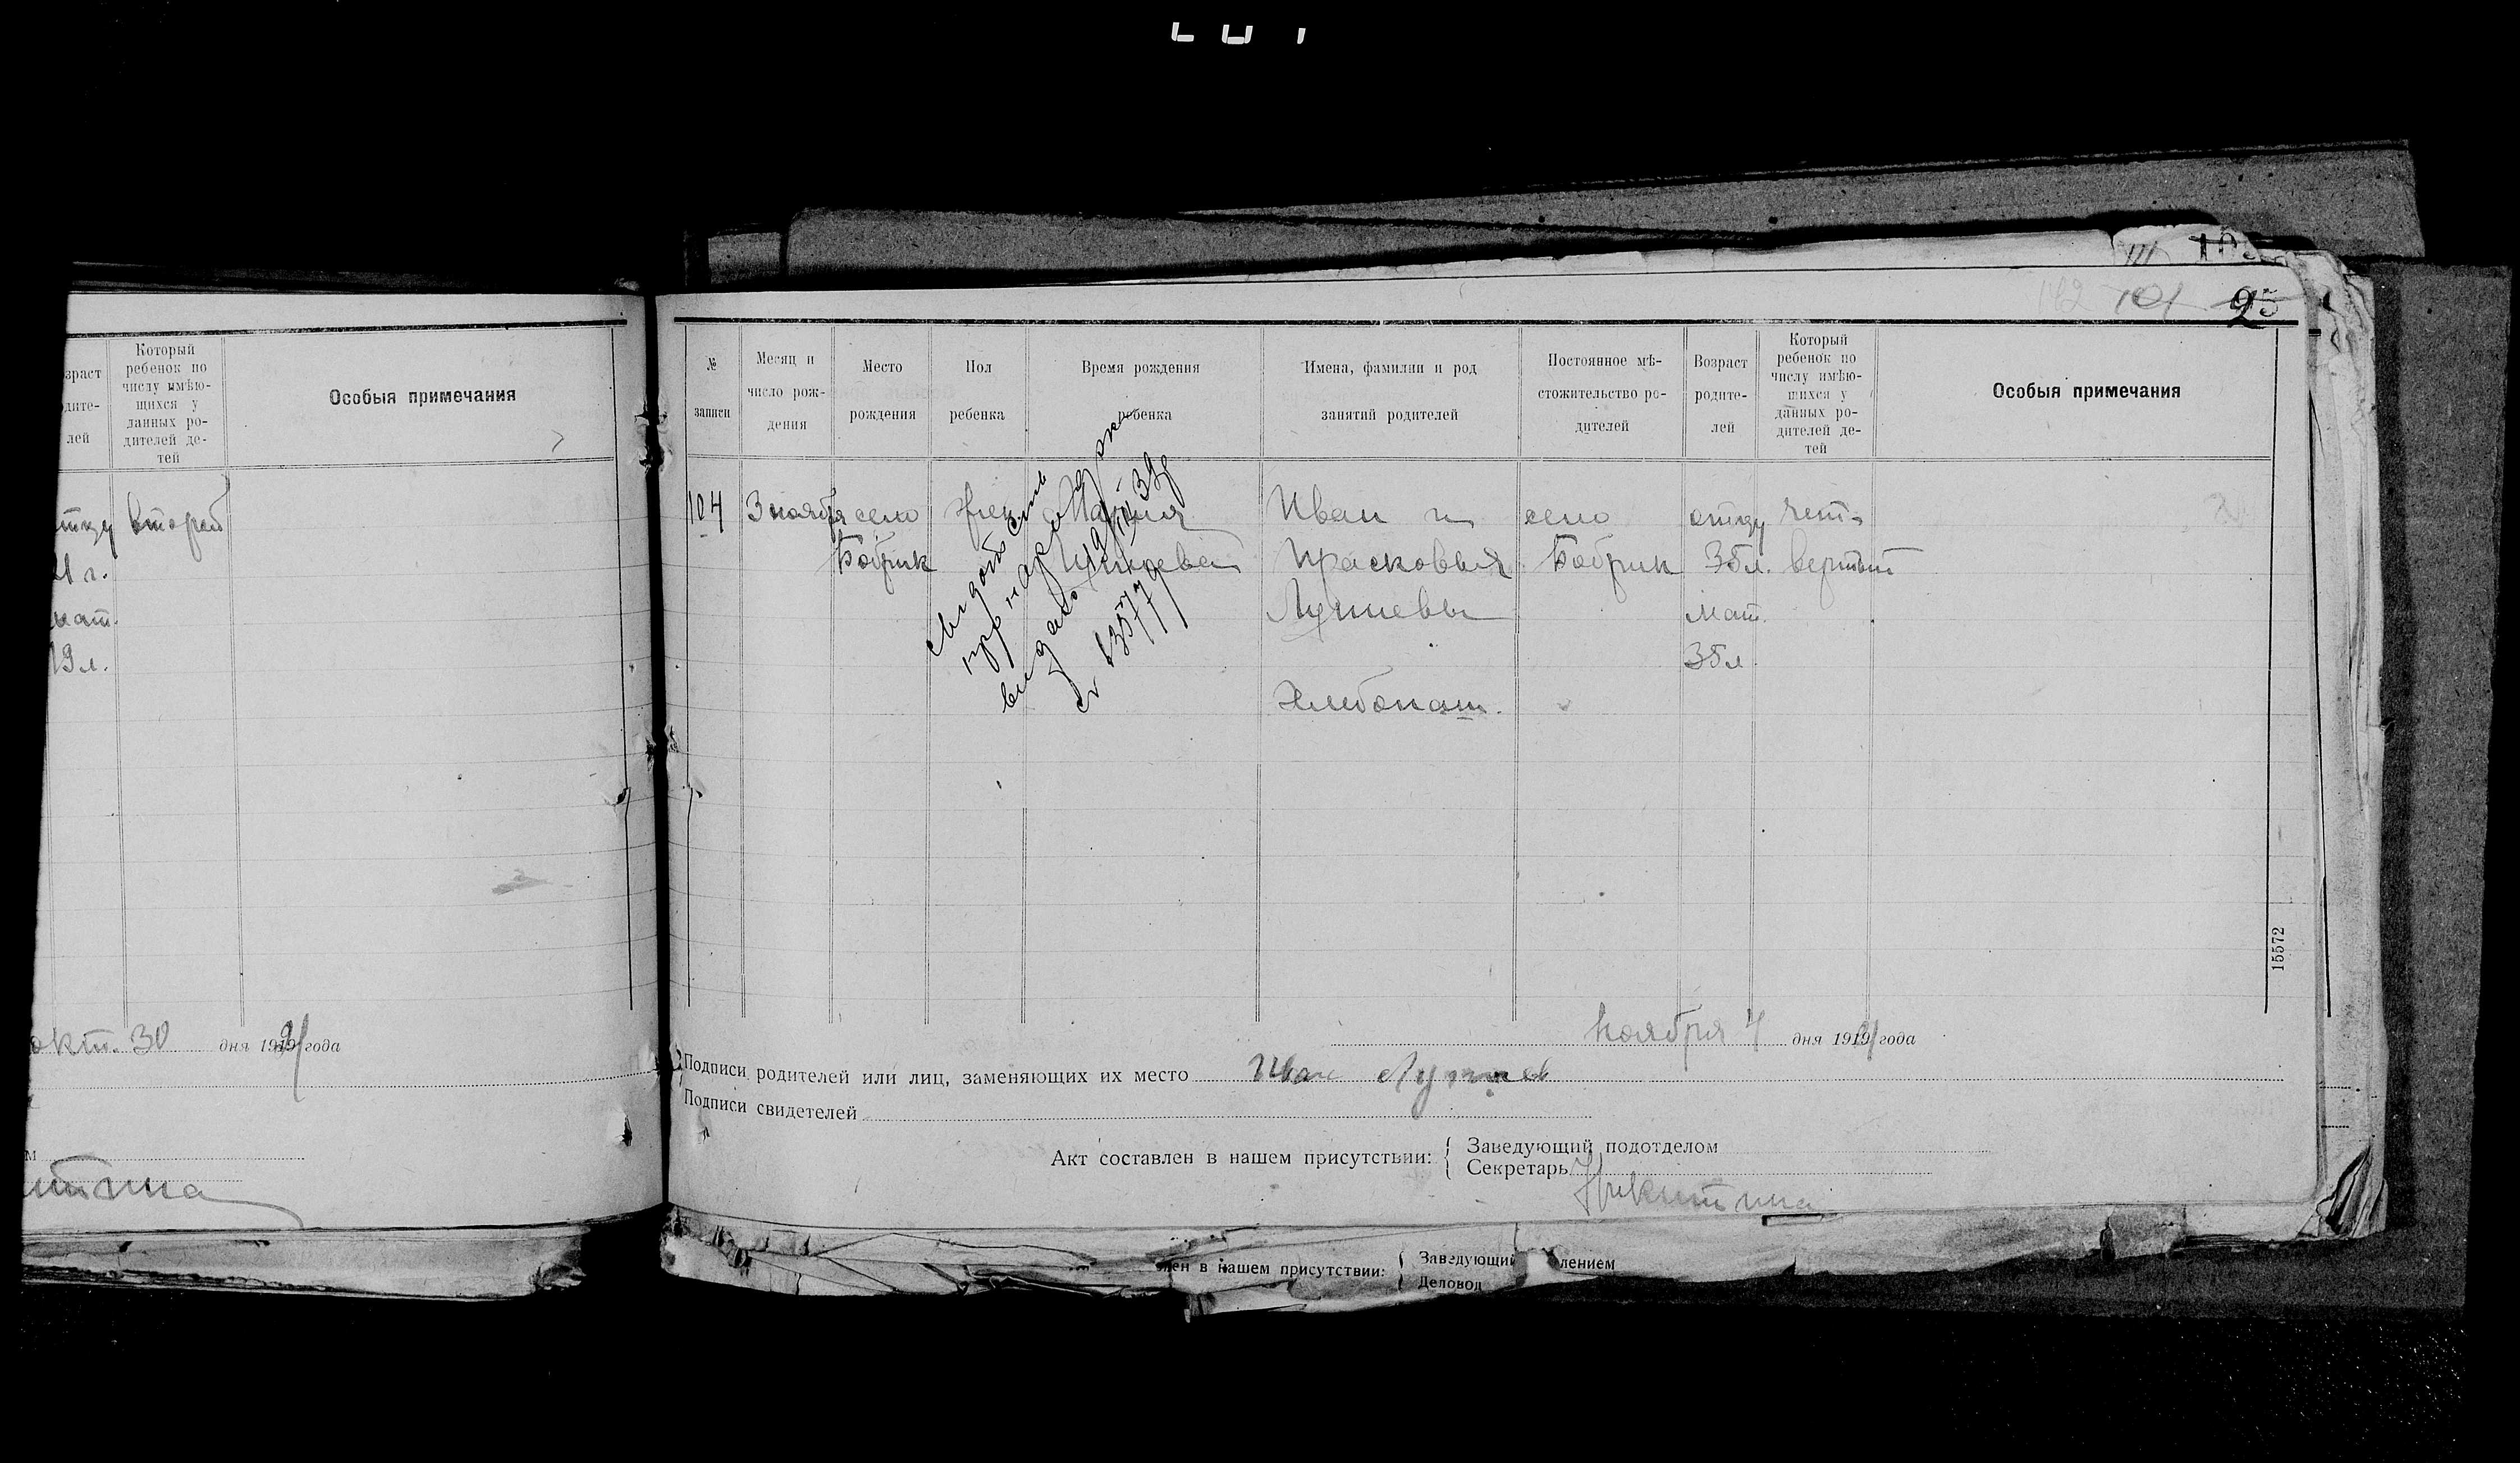 зраст
дите-
лей
Который
ребенок по
числу имѣю-
щихся у
данных ро-
дителей де-
тей
Особыя примечания
второй
19л.
окт. 30 дня 1919 года
142 101 25
№
записи
Месяц и
число рож-
дения
Место
рождения
Пол
ребенка
Время рождения
ребенка
Имена, фамилии и род
занятий родителей
Постоянное мѣ-
стожительство ро-
дителей
Возраст
родите-
лей
Который
ребенок по
числу имѣю-
щихся у
данных ро-
дителей де-
тей
Особыя примечания
104 3 ноября село жен Мария Иван и село отцу чет-
Бобрик Прасковья Бобрик 35л. вертый
мат.
35л
Хлебопаш.
выдано
15572
Ноября 4 дня 1919 года
Подписи родителей или лиц, заменяющих их место Иван
Подписи свидетелей
"
Акт составлен в нашем присутствии:
Заведующий подотделом
Секретарь Никитина
лен в нашем присутствии:
Заведующий лением
Деловод